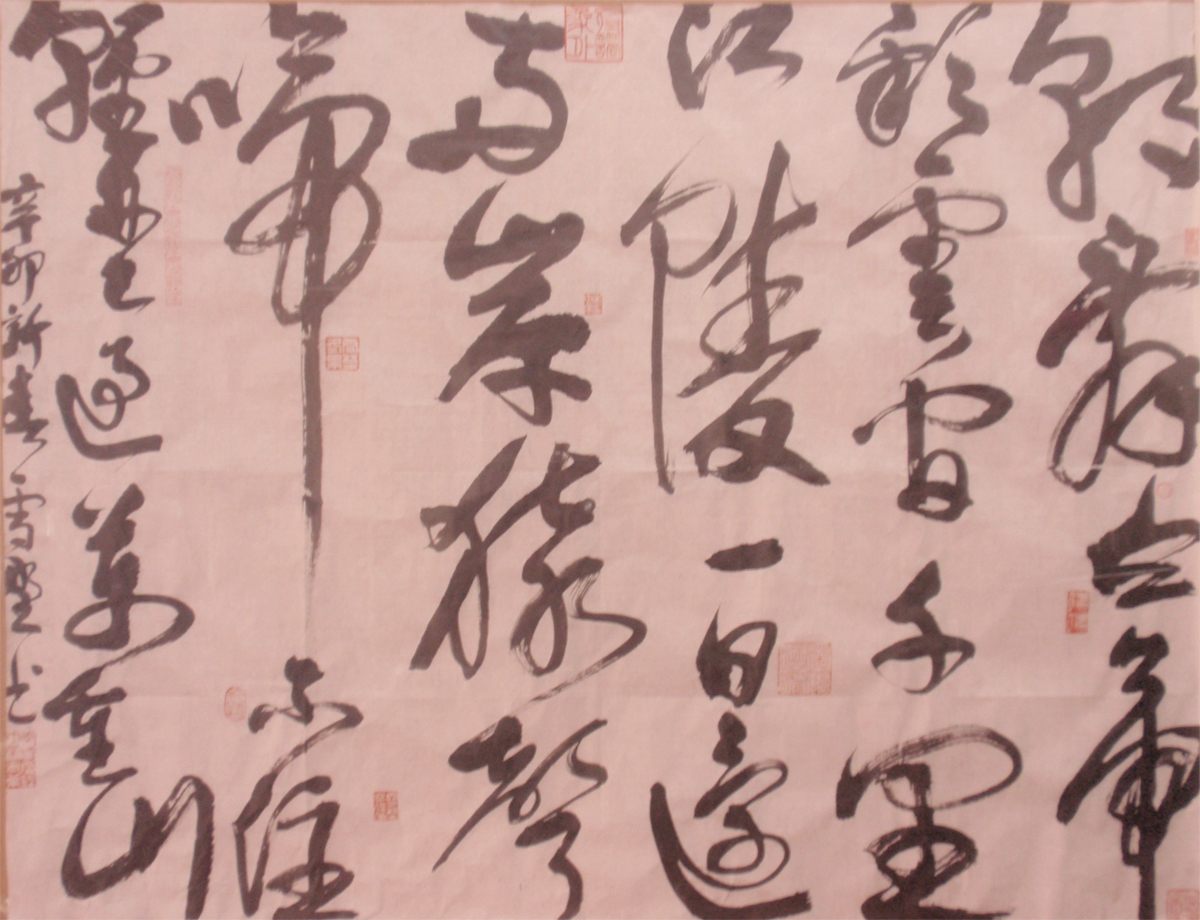 朝辭白帝
彩雲間千里
江陵一日還
兩岸猿聲
啼不住
輕舟已過萬重山
辛卯新春雪